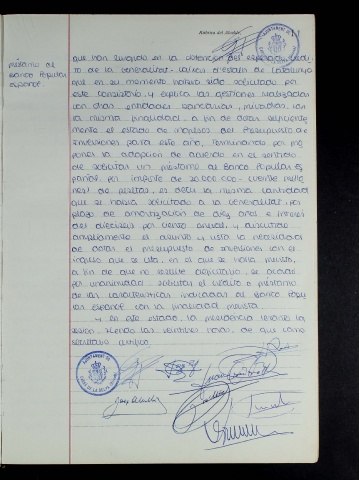 Rúbrica del Alcalde,
préstamo de
Banco Popular
Español.
que han surgido en la obtención del
to de la Generalitat - Caixa d'Estalvis de Catalunya
que en su momento había sido solicitado por
este Consistorio y explica las gestiones realizadas
con otras entidades bancarias, privadas con
la misma finalidad, a fin de dotar suficiente
mente el estado de ingresos del Presupuesto de
Inversiones para este año, terminando por pro
poner la adopción de acuerdo en el sentido
de solicitar un préstamo al Banco Popular Es
pañol por importe de 20.000.000.- (veinte millo
nes) de pesetas, es decir la misma cantidad
que se había solicitado a la Generalitat, por
plazo de amortización de diez años e interés
del dieciseis por ciento anual, y discutido
ampliamente el asunto y vista la necesidad
de dotar el presupuesto de inversiones con el
ingreso que se cita, en el que se había previsto,
a fin de que no resulte deficitario, se acordó
por unanimidad solicitar el crédito o préstamo
de las características indicadas al Banco Popu
lar Español con la finalidad prevista.
Y en este estado, la presidencia levanta la
sesión, siendo las veintitres horas, de que como
secretario certifico.
AJUNTAMENT DE